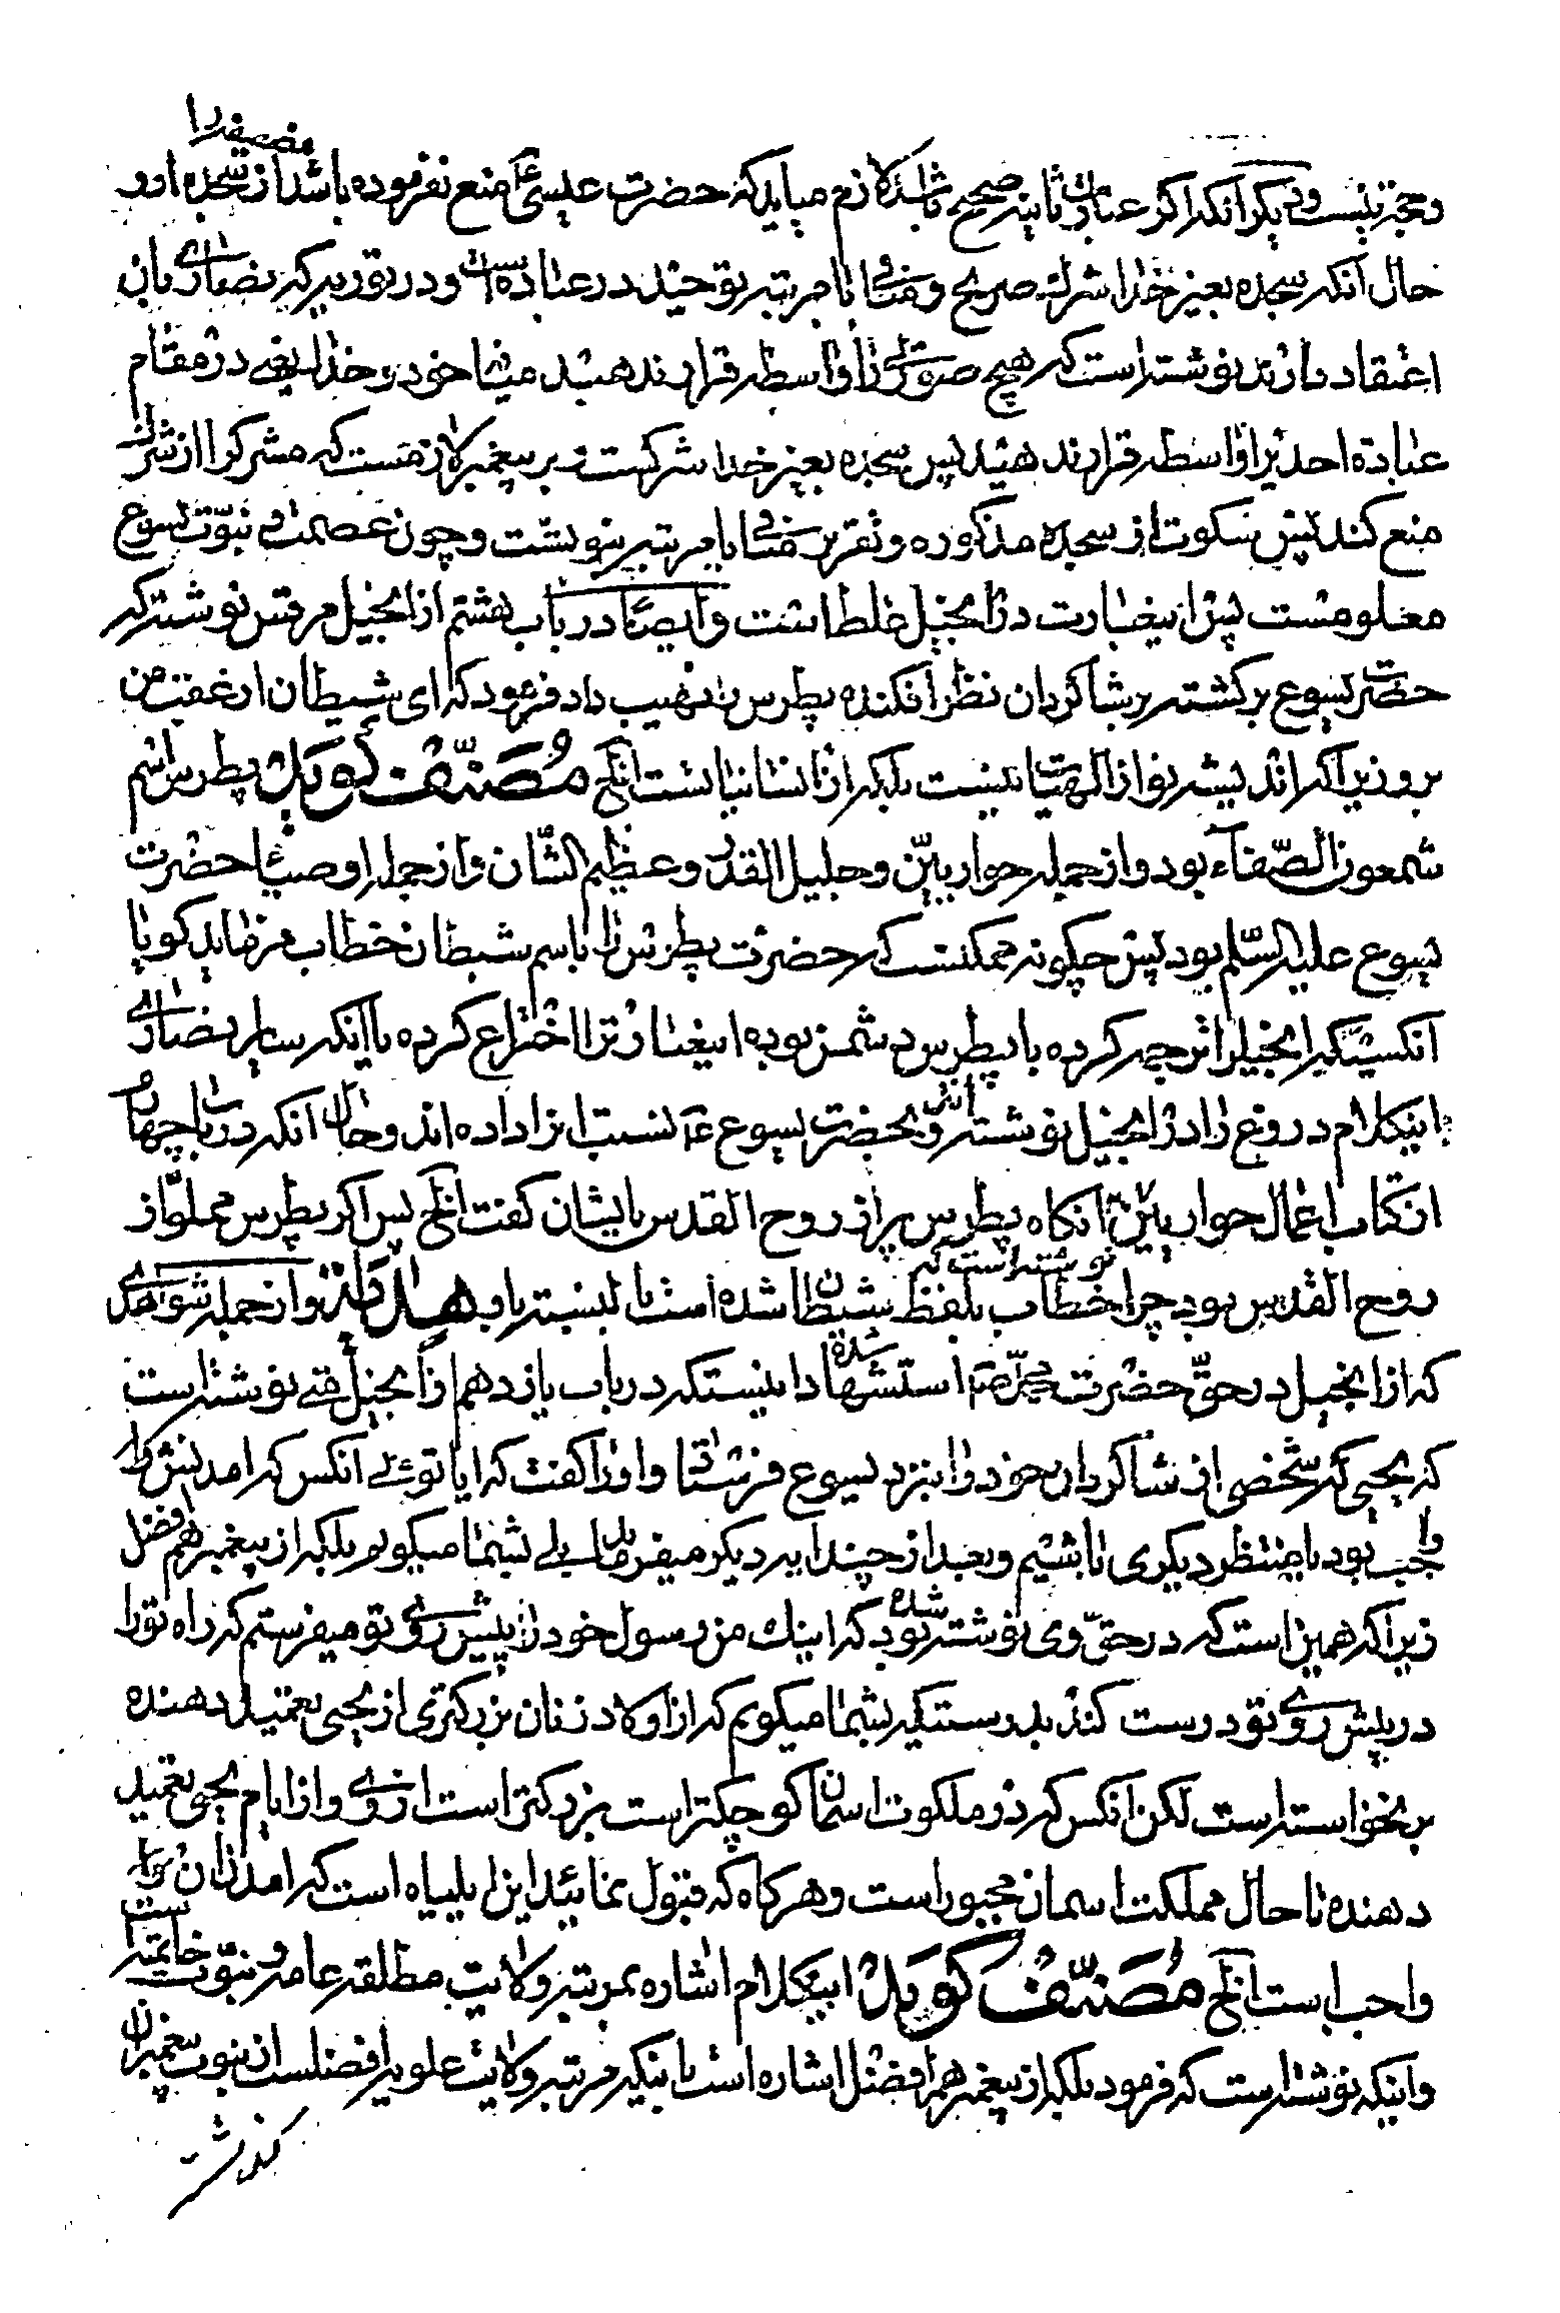 مضیقه را
وحجة نیست و دیگر آنکه اگر عبارت ثانیه صحیح باشد لازم میاید که حضرت عیسی ع منع نفرموده باشد از سجده او و
حال آنکه سجده بغیر خدا شرک صریح و منافی با مرتبه توحید در عباده است و در توریة که نصاری بان
اعتقاد دارند نوشته است که هیچ صورتی را واسطه قرار ندهید میان خود و خدا یعنی در مقام
عبادة احدیرا واسطه قرار ندهید پس سجده بغیر خدا شرکست و بر پیغمبر لازمست که مشرک را از شرک
منع کند پس سکوت از سجده مذکوره و تقریر منافی با مرتبه نبوتست و چون عصمت و نبوّت یسوع
معلومست پس اینعبارت در انجیل غلط است وایضا در باب هشتم از انجیل مرقس نوشته که
حضرت یسوع برگشته بر شاگردان نظر افکنده پطرس را نهیب داد فرمود که ای شیطان از عقب من
برو زیرا که اندیشه تو از الهیات نیست بلکه از انسانیاتست الخ مُصَنِّفْ گوید پطرس اسم
شمعون الصّفآء بود و از جمله حواریّین و جلیل القدر و عظیم الشّان و از جمله اوصیاء حضرت
یسوع علیه السّلم بود پس چگونه ممکنست که حضرت پطرس را باسم شیطان خطاب فرماید گویا
آنکسیکه انجیل را ترجمه کرده با پطرس دشمن بوده اینعبارترا اختراع کرده یا اینکه سایر نصاری
اینکلام دروغ را در انجیل نوشته اند و بحضرت یسوع ع نسبت انرا داده اند و حال آنکه در باب چهارم
از کتاب اعمال حواریین نوشته است که انگاه پطرس پر از روح القدس بایشان گفت الخ پس اگر پطرس مملوّ از
روح القدس بود چرا خطاب بلفظ شیطان شده است بالنسبته باو هدایة و از جمله شواهدی
که از انجیل در حقّ حضرت محمّد ص استشهاد شده اینستکه در باب یازدهم از انجیل متی نوشته است
که یحیی که شخصی از شاگردان خود را بنزد یسوع فرستاد و او را گفت که ایا توئی انکس که امدنش را
واجب بود یا منتظر دیگری باشیم و بعد از چند ایه دیگر میفرماید بلی بشما میگویم بلکه از پیغمبر هم افضل
زیرا که همین است که در حقّ وی نوشته شده بود که اینک من رسول خود را پیش روی تو میفرستم که راه تو را
در پیش روی تو درست کند بدرستیکه بشما میگویم که از اولاد زنان بزرگتری از یحیی تعمید دهنده
برنخواسته است لکن انکس که در ملکوت اسمان کوچکتر است بزرگتر است از وی و از ایام یحیی تعمید
دهنده تا حال مملکت اسمان مجبور است و هرگاه که قبول نمائید این ایلیاه است که امدن او را
واجب است الخ مُصَنِّفْ گویدْ اینکلام اشاره بمرتبه ولایت مطلقه عامه و نبوّت خاتمیه است
واینکه نوشته است که فرمود بلکه از پیغمبر هم افضل اشاره است باینکه مرتبه ولایت علویه افضلست از نبوت پیغمبران
گذشته